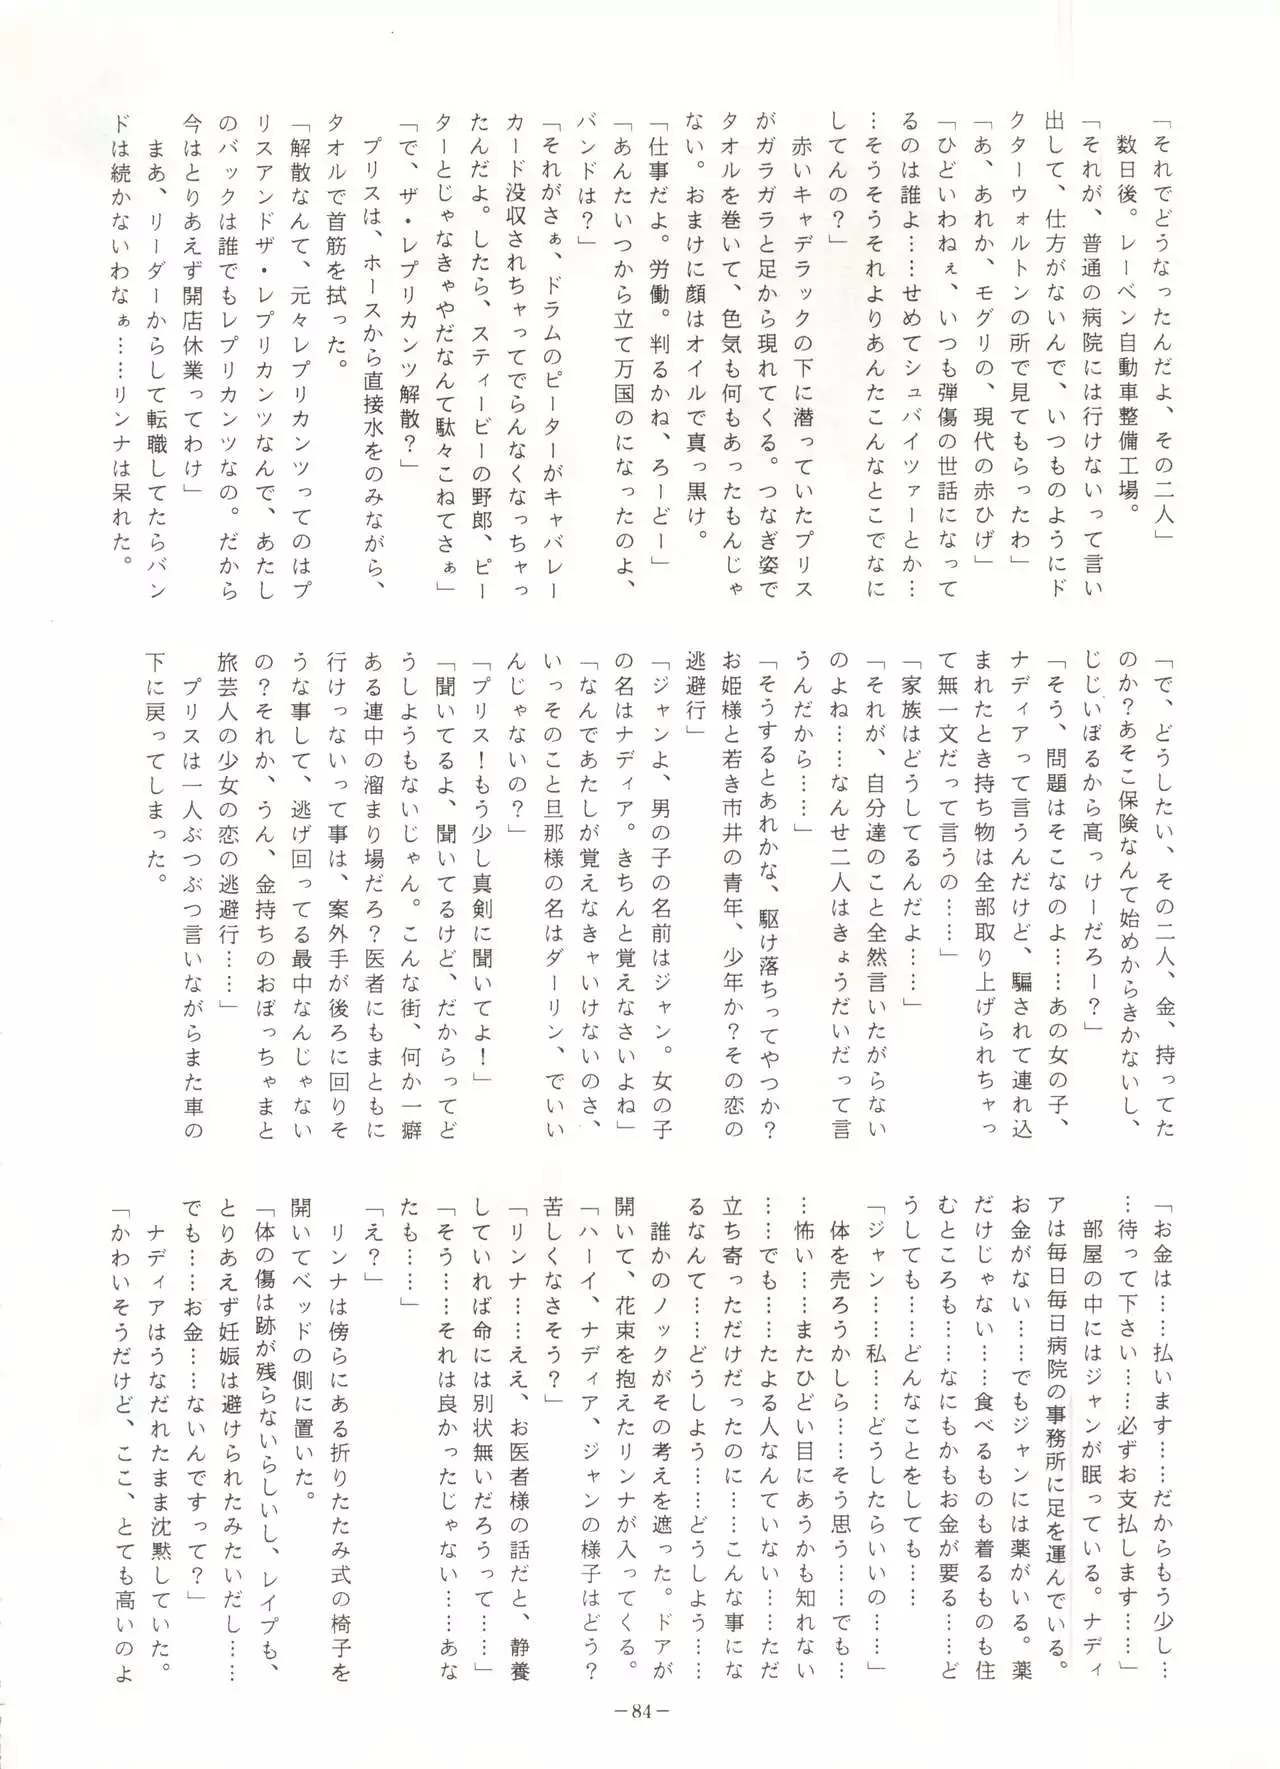 「それでどうなったんだよ、その二人」
　数日後。レーベン自動車整備工場。
「それが、普通の病院には行けないって言い
出して、仕方がないんで、いつものようにド
クターウォルトンの所で見てもらったわ」
「あ、あれか、モグリの、現代の赤ひげ」
「ひどいわねぇ、いつも弾傷の世話になって
るのは誰よ……せめてシュバイツァーとか…
…そうそうそれよりあんたこんなとこでなに
してんの？」
　赤いキャデラックの下に潜っていたプリス
がガラガラと足から現れてくる。つなぎ姿で
タオルを巻いて、色気も何もあったもんじゃ
ない。おまけに顔はオイルで真っ黒け。
「仕事だよ。労働。判るかね、ろーどー」
「あんたいつから立て万国のになったのよ、
バンドは？」
「それがさぁ、ドラムのピーターがキャバレー
カード没収されちゃってでらんなくなっちゃっ
たんだよ。したら、スティービーの野郎、ピー
ターとじゃなきゃやだなんて駄々こねてさぁ」
「で、ザ・レプリカンツ解散？」
　プリスは、ホースから直接水をのみながら、
タオルで首筋を拭った。
「解散なんて、元々レプリカンツってのはプ
リスアンドザ・レプリカンツなんで、あたし
のバックは誰でもレプリカンツなの。だから
今はとりあえず開店休業ってわけ」
　まあ、リーダーからして転職してたらバン
ドは続かないわなぁ……リンナは呆れた。
「で、どうしたい、その二人、金、持ってた
のか？あそこ保険なんて始めからきかないし、
じじいぼるから高っけーだろー？」
「そう、問題はそこなのよ……あの女の子、
ナディアって言うんだけど、騙されて連れ込
まれたとき持ち物は全部取り上げられちゃっ
て無一文だって言うの……」
「家族はどうしてるんだよ……」
「それが、自分達のこと全然言いたがらない
のよね……なんせ二人はきょうだいだって言
うんだから……」
「そうするとあれかな、駆け落ちってやつか？
お姫様と若き市井の青年、少年か？その恋の
逃避行」
「ジャンよ、男の子の名前はジャン。女の子
の名はナディア。きちんと覚えなさいよね」
「なんであたしが覚えなきゃいけないのさ、
いっそのこと旦那様の名はダーリン、でいい
んじゃないの？」
「プリス！もう少し真剣に聞いてよ！」
「聞いてるよ、聞いてるけど、だからってど
うしようもないじゃん。こんな街、何か一癖
ある連中の溜まり場だろ？医者にもまともに
行けっないって事は、案外手が後ろに回りそ
うな事して、逃げ回ってる最中なんじゃない
の？それか、うん、金持ちのおぼっちゃまと
旅芸人の少女の恋の逃避行……」
　プリスは一人ぶつぶつ言いながらまた車の
下に戻ってしまった。
「お金は……払います……だからもう少し…
…待って下さい……必ずお支払します……」
　部屋の中にはジャンが眠っている。ナディ
アは毎日毎日病院の事務所に足を運んでいる。
お金がない……でもジャンには薬がいる。薬
だけじゃない……食べるものも着るものも住
むところも……なにもかもお金が要る……ど
うしても……どんなことをしても……
「ジャン……私……どうしたらいいの……」
　体を売ろうかしら……そう思う……でも…
…怖い……またひどい目にあうかも知れない
……でも……たよる人なんていない……ただ
立ち寄っただけだったのに……こんな事にな
るなんて……どうしよう……どうしよう……
　誰かのノックがその考えを遮った。ドアが
開いて、花束を抱えたリンナが入ってくる。
「ハーイ、ナディア、ジャンの様子はどう？
苦しくなさそう？」
「リンナ……ええ、お医者様の話だと、静養
していれば命には別状無いだろうって……」
「そう……それは良かったじゃない……あな
たも……」
「え？」
　リンナは傍らにある折りたたみ式の椅子を
開いてベッドの側に置いた。
「体の傷は跡が残らないらしいし、レイプも、
とりあえず妊娠は避けられたみたいだし……
でも……お金……ないんですって？」
　ナディアはうなだれたまま沈黙していた。
「かわいそうだけど、ここ、とても高いのよ
－84－